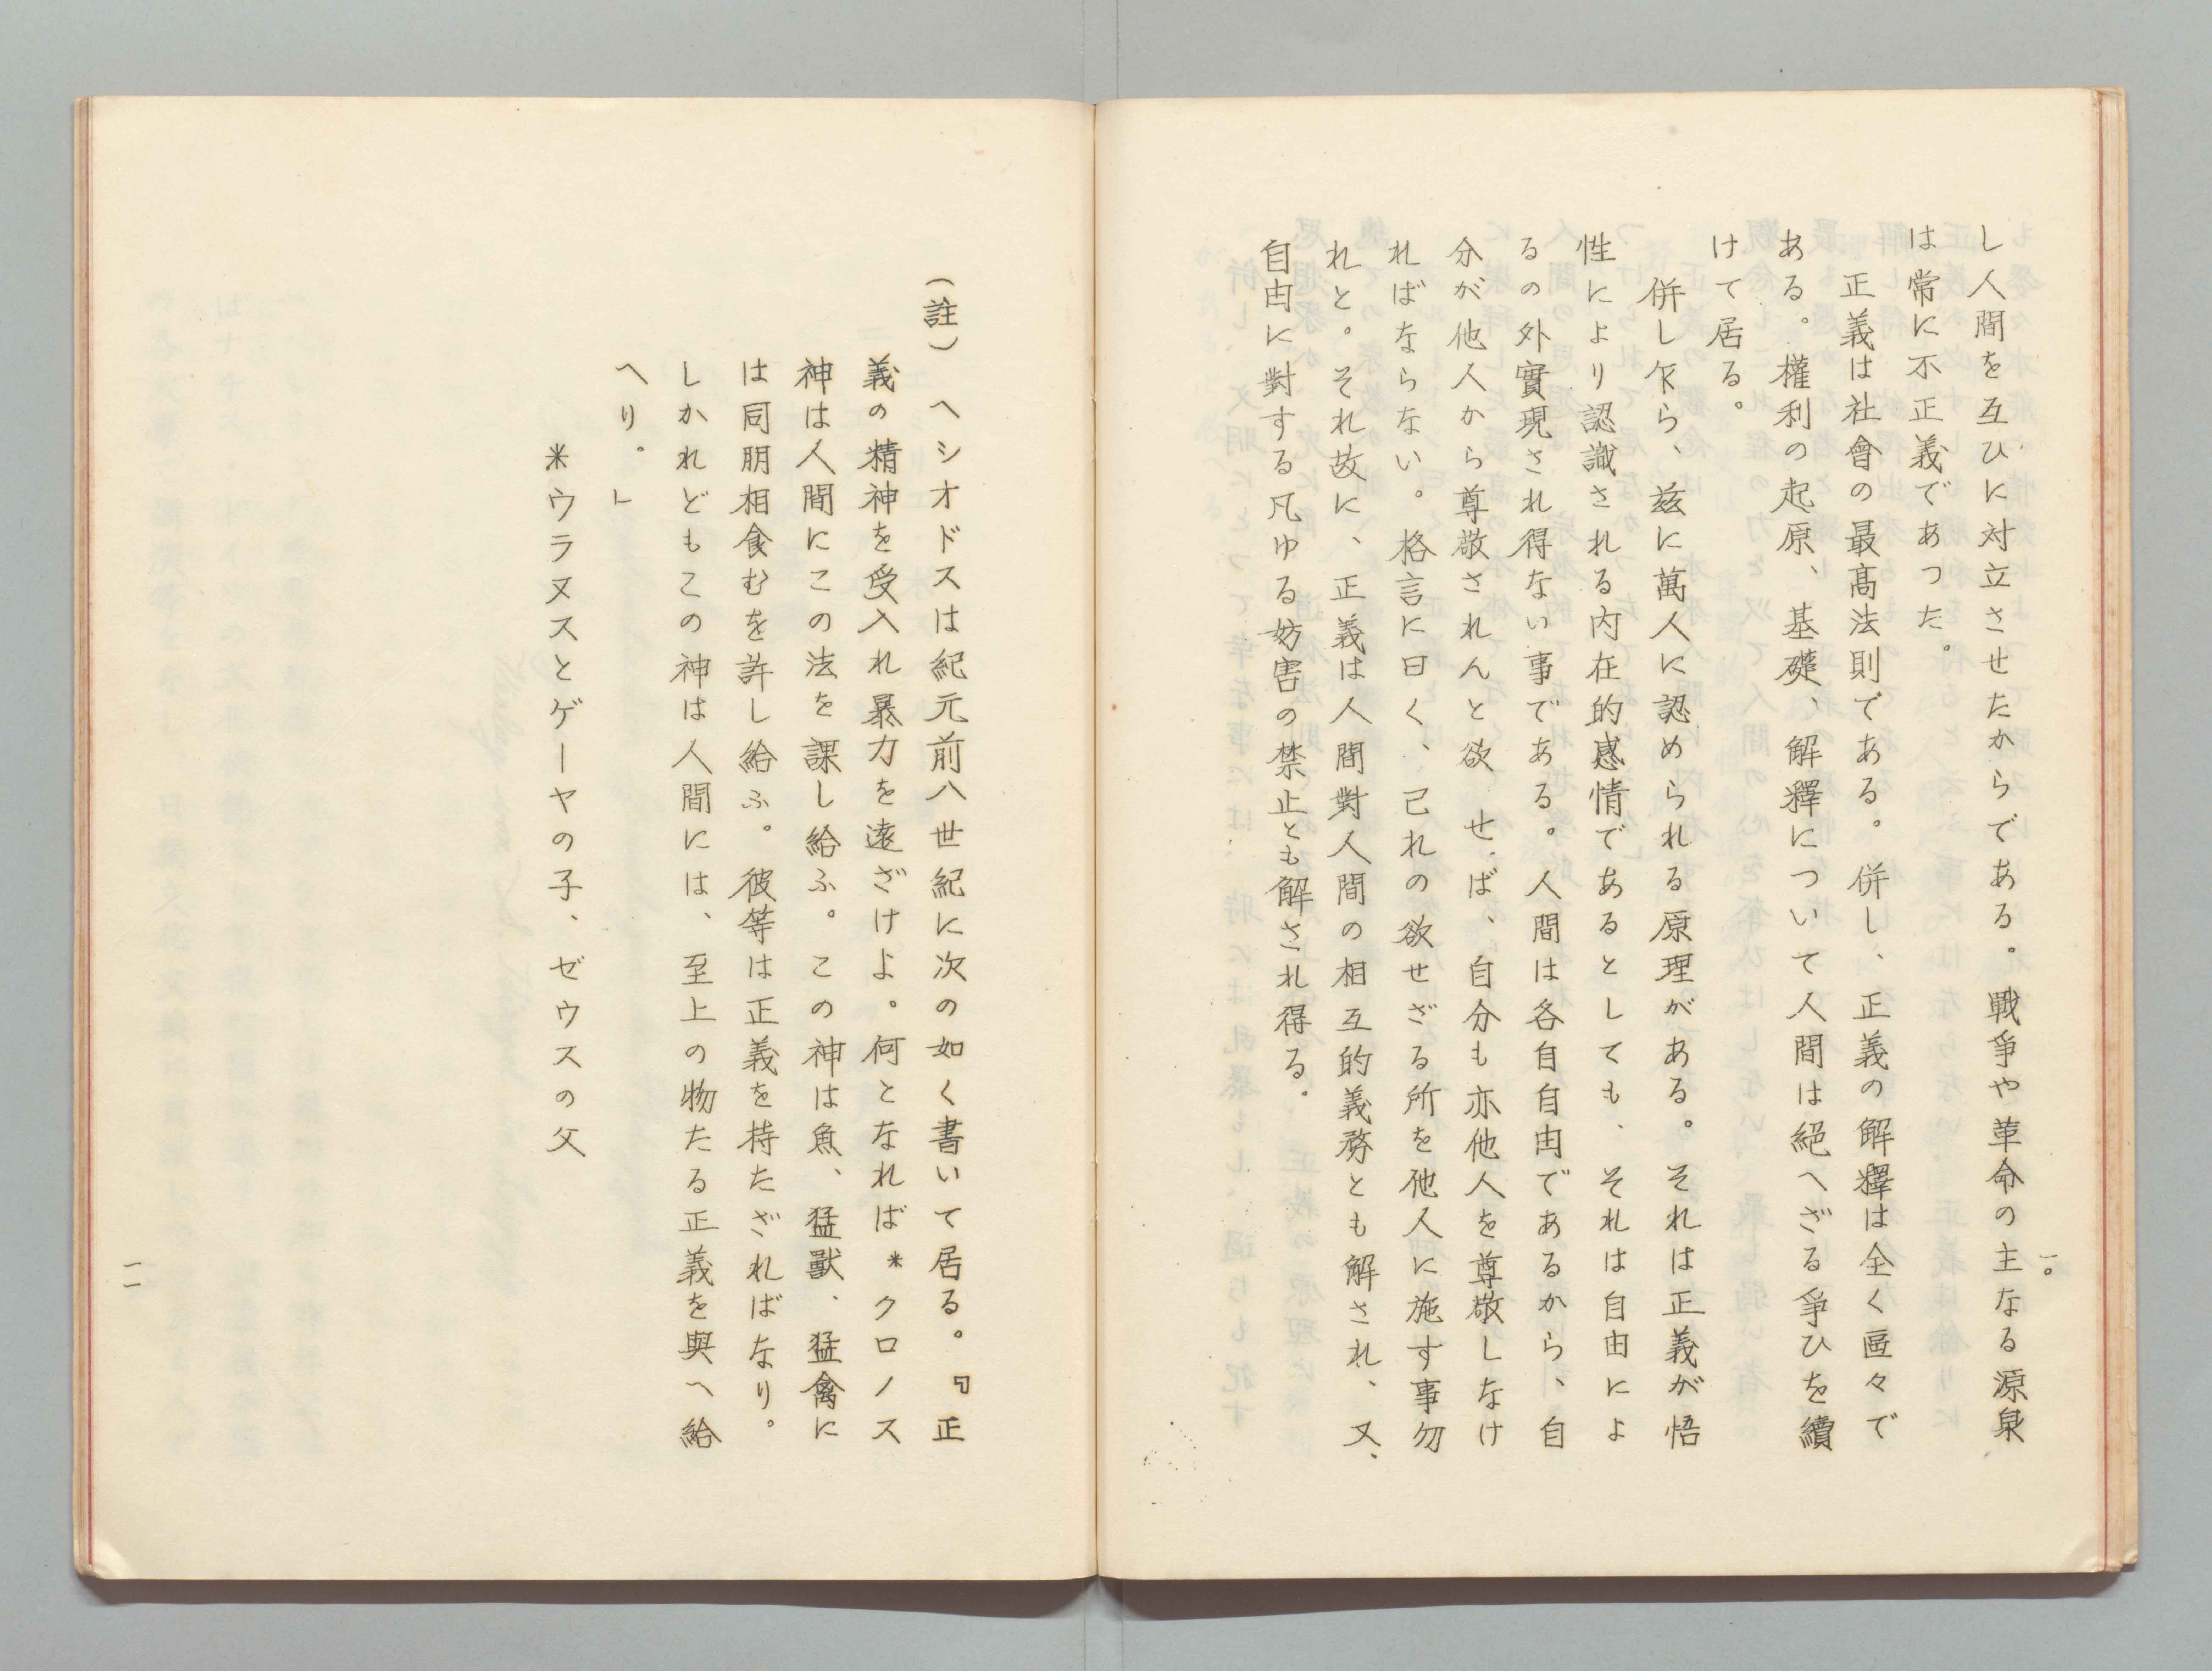 一〇
し人間を互ひに対立させたからである。戰爭や革命の主なる源泉
は常に不正義であつた。
正義は社會の最高法則である。併し、正義の解釋は全く區々で
ある。權利の起原、基礎、解釋について人間は絕へざる爭ひを續
けて居る。
併し乍ら、兹に萬人に認められる原理がある。それは正義が悟
性により認識される内在的感情であるとしても、それは自由によ
るの外實現され得ない事である。人間は各自自由であるから、自
分が他人から尊敬されんと欲せば、自分も亦他人を尊敬しなけ
ればならない。格言に曰く、己れの欲せざる所を他人に施す事勿
れと。それ故に、正義は人間對人間の相互的義務とも解され、又、
自由に對する凡ゆる妨害の禁止とも解され得る。
(註) ヘシオドスは紀元前八世紀に次の如く書いて居る。『正
義の精神を受入れ暴力を遠ざけよ。何となれば*クロノス
神は人間にこの法を課し給ふ。この神は魚、猛獸、猛禽に
は同朋相食むを許し給ふ。彼等は正義を持たざればなり。
しかれどもこの神は人間には、至上の物たる正義を與へ給
へり。」
*ウラヌスとゲーヤの子、ゼウスの父
一一